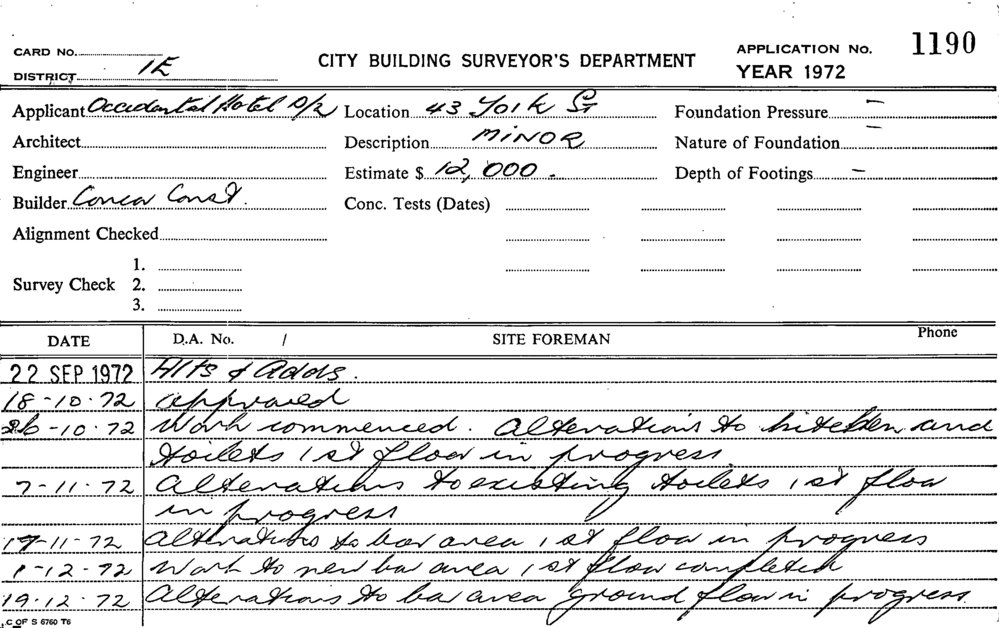 CARD No.
DISTRICT 1E
CITY BUILDING SURVEYOR'S DEPARTMENT
APPLICATION No. 1190
YEAR 1972
Applicant Occidental Hotel P/L Location 43 York St Foundation Pressure —
Architect Description MINOR Nature of Foundation —
Engineer Estimate $ 12,000. Depth of Footings —
Builder Const. Conc. Tests (Dates)
Alignment Checked
1.
Survey Check 2.
3.
DATE D.A. No. / SITE FOREMAN Phone
22 SEP 1972 Alts & Adds.
18-10-72 approved
26-10-72 Work commenced. Alterations to kitchen and
toilets 1st floor in progress
7-11-72 Alterations to existing toilets 1st floor
in progress
17-11-72 Alterations to bar area 1st floor in progress
1-12-72 Work to new bar area 1st floor completed
19.12.72 Alterations to bar area ground floor in progress
C OF S 6760 T6